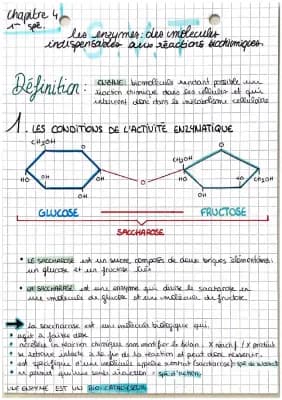 Chapitre 4
1ère spé.
les enzymes: des molécules
indispensables aux réactions biochimiques.
Définition:
ENZYME: biomolécule rendant possible une
réaction chimique dans les cellules et qui
intervient donc dans le métabolisme cellulaire
1. LES CONDITIONS DE L'ACTIVITÉ ENZYMATIQUE
CH2OH
CH2OH
HO
OH
OH
O
HO
CH2OH
OH
GLUCOSE
FRUCTOSE
SACCHAROSE
• LE SACCHAROSE est un sucre, composés de deux briques élémentaires:
un glucose et un fructose liés
• LA SACCHARASE est une enzyme qui divise le saccharose en
une molécule de glucose et une molécule de fructose.
→ La saccharase est une molécule biologique qui,
• agit à faible dose
• accélère la réaction chimique sans modifier le bilan
• se retrouve intacte à la fin de la réaction et peut donc resservir.
• est spécifique d'une molécule appelée substrat (saccharose): spé de substrat
• ne permet qu'une seule réaction: spé d'action
UNE ENZYME EST UN BIOCATALYSEUR